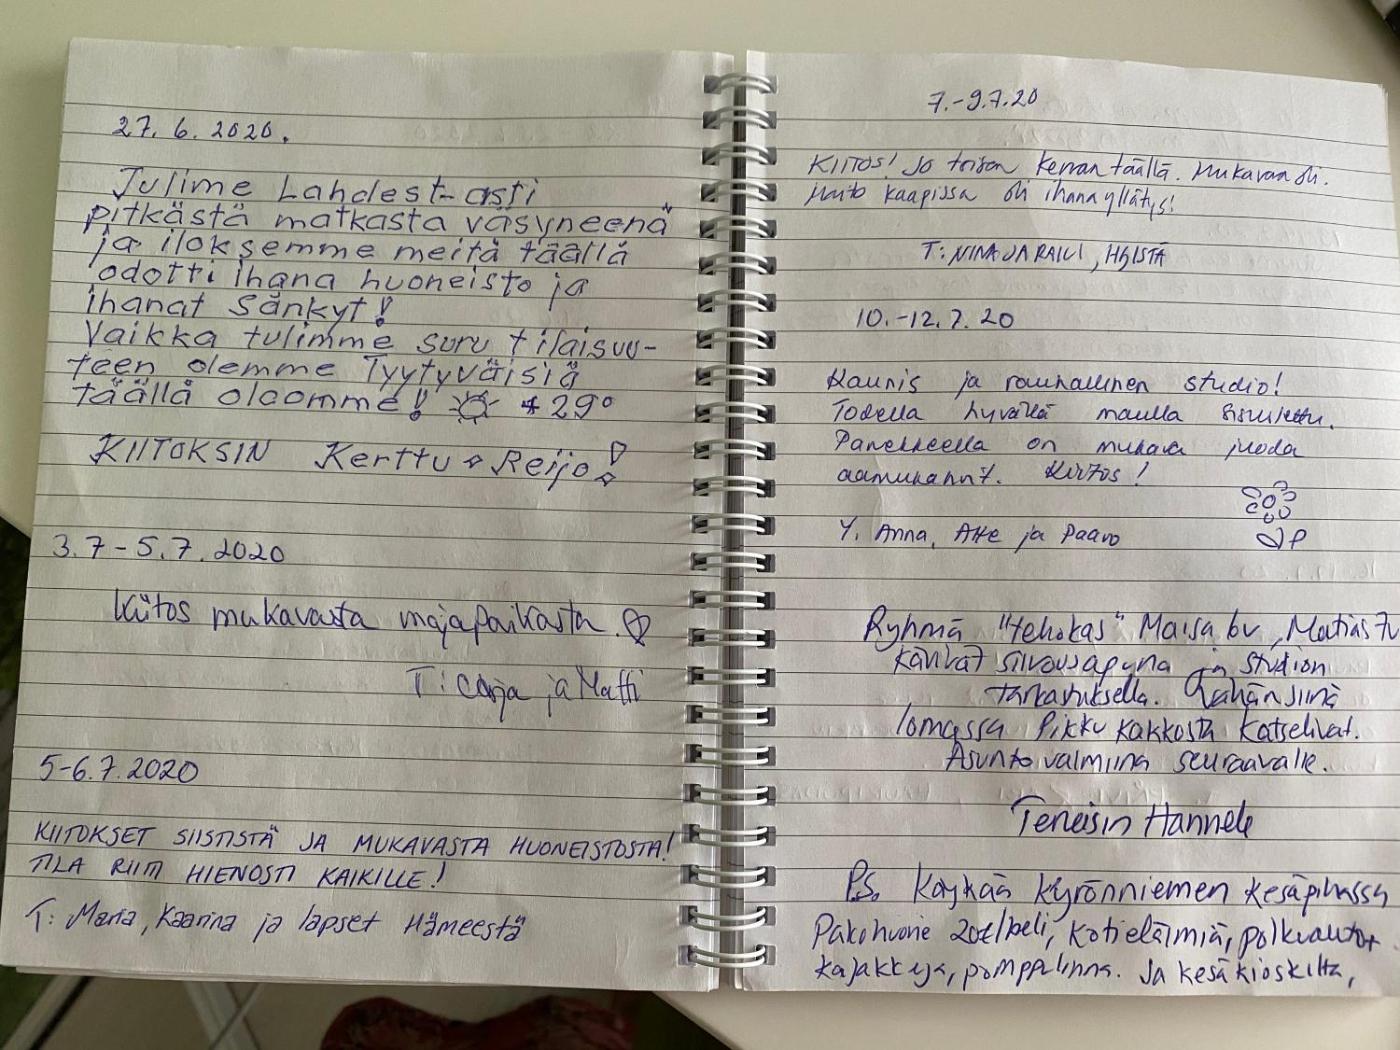 27.6.2020.
Tulime Lahdest-asti
pitkästä matkasta väsyneenä
ja iloksemme meitä täällä
odotti ihana huoneisto ja
ihanat sänkyt!
Vaikka tulimme suru tilaisuu-
teen olemme Tyytyväisiä
täällä oloomme! +29°
KIITOKSIN Kerttu + Reijo!
3.7-5.7.2020
Kiitos mukavasta majapaikasta.
T: Carja ja Matti
5-6.7.2020
KIITOKSET SIISTISTÄ JA MUKAVASTA HUONEISTOSTA!
TILA RIITTI HIENOSTI KAIKILLE!
T: Maria, Kaarina ja lapset Hämeestä
7.-9.7.20
KIITOS! Jo toisen kerran täällä. Mukavan oli.
Muito kaapissa oli ihana yllätys!
T: NINA JA RAILI, HGISTÄ
10.-12.7.20
Kaunis ja rauhallinen studio!
Todella hyvällä maulla sisustettu.
Parvekkeella on mukava juoda
aamukahvit. Kiitos!
Y. Anna, Atte ja Paavo
Ryhmä "tehokas" Maisa 6v, Matias 7v
kävivät siivousapuna ja studion
tarkastuksella. Vähän siinä
lomassa Pikku kakkosta katselivat.
Asunto valmiina seuraavalle.
Terveisin Hannele
P.S. Käykää Kyrönniemen kesäpihassa
Pakohuone 20€/peli, kotieläimiä, polkuautot
kajakkeja, pomppulinna. Ja kesäkioskilta,